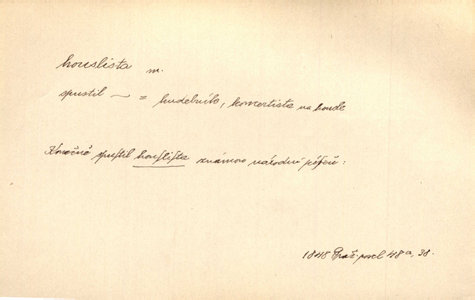 houslista m.
spustil ~ = hudebník, koncertista na housle
Konečně spustil houslista známou národní píseň:
1848 Praž. posel 48a, 38.